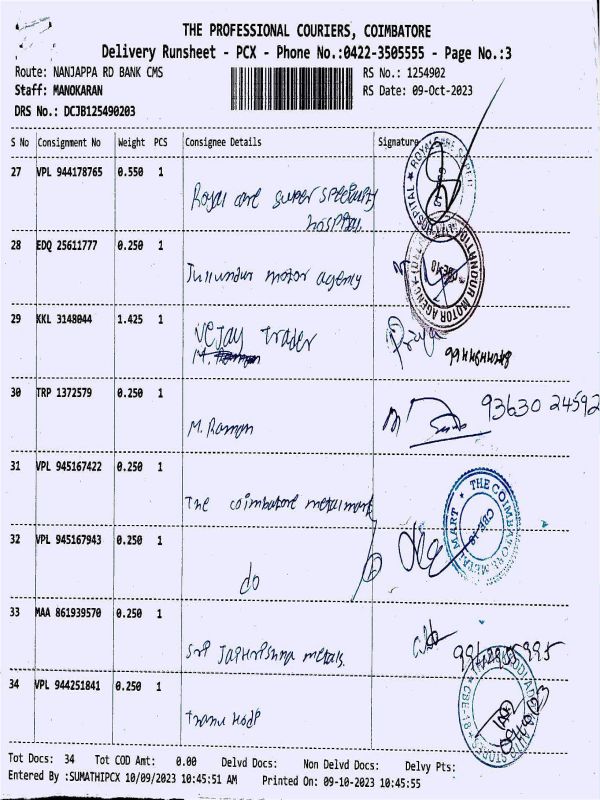 THE PROFESSIONAL COURIERS, COIMBATORE
Delivery Runsheet - PCX - Phone No.:0422-3505555 - Page No.:3
Route: NANJAPPA RD BANK CMS RS No.: 1254902
Staff: MANOKARAN RS Date: 09-Oct-2023
DRS No.: DCJB125490203
S No Consignment No Weight PCS Consignee Details Signature
27 VPL 944178765 0.550 1
Royal care super speciality
hospital
28 EDQ 25611777 0.250 1
Jullundur motor agency
29 KKL 3148044 1.425 1
Vejay Trader
Priya
30 TRP 1372579 0.250 1
M. Raman
93630 24592
31 VPL 945167422 0.250 1
The coimbatore metal mart
THE COIMBATORE METAL MART
CBE-18
32 VPL 945167943 0.250 1
do
33 MAA 861939570 0.250 1
Sri Jaikrishna metals
34 VPL 944251841 0.250 1
CBE-18
Tot Docs: 34 Tot COD Amt: 0.00 Delvd Docs: Non Delvd Docs: Delvy Pts:
Entered By :SUMATHIPCX 10/09/2023 10:45:51 AM Printed On: 09-10-2023 10:45:55